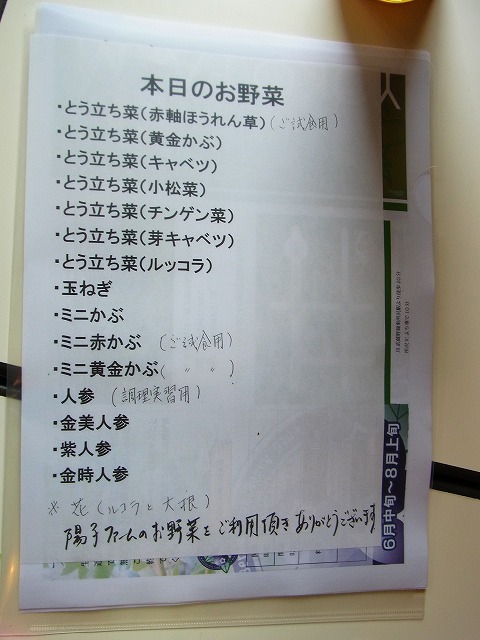 本日のお野菜
・とう立ち菜(赤軸ほうれん草)(ご試食用)
・とう立ち菜(黄金かぶ)
・とう立ち菜(キャベツ)
・とう立ち菜(小松菜)
・とう立ち菜(チンゲン菜)
・とう立ち菜(芽キャベツ)
・とう立ち菜(ルッコラ)
・玉ねぎ
・ミニかぶ
・ミニ赤かぶ (ご試食用)
・ミニ黄金かぶ( 〃 〃 )
・人参 (調理実習用)
・金美人参
・紫人参
・金時人参
※ 花(ルコラと大根)
陽子ファームのお野菜をご利用頂きありがとうございます
6月中旬～8月上旬